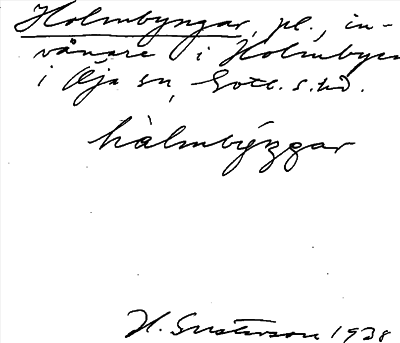 Holmbyngar, pl., in-
vånare i Holmbyen
i Öja sn, Gotl. s. hd.
hàlmbýŋgar
H. Gustavson 1938